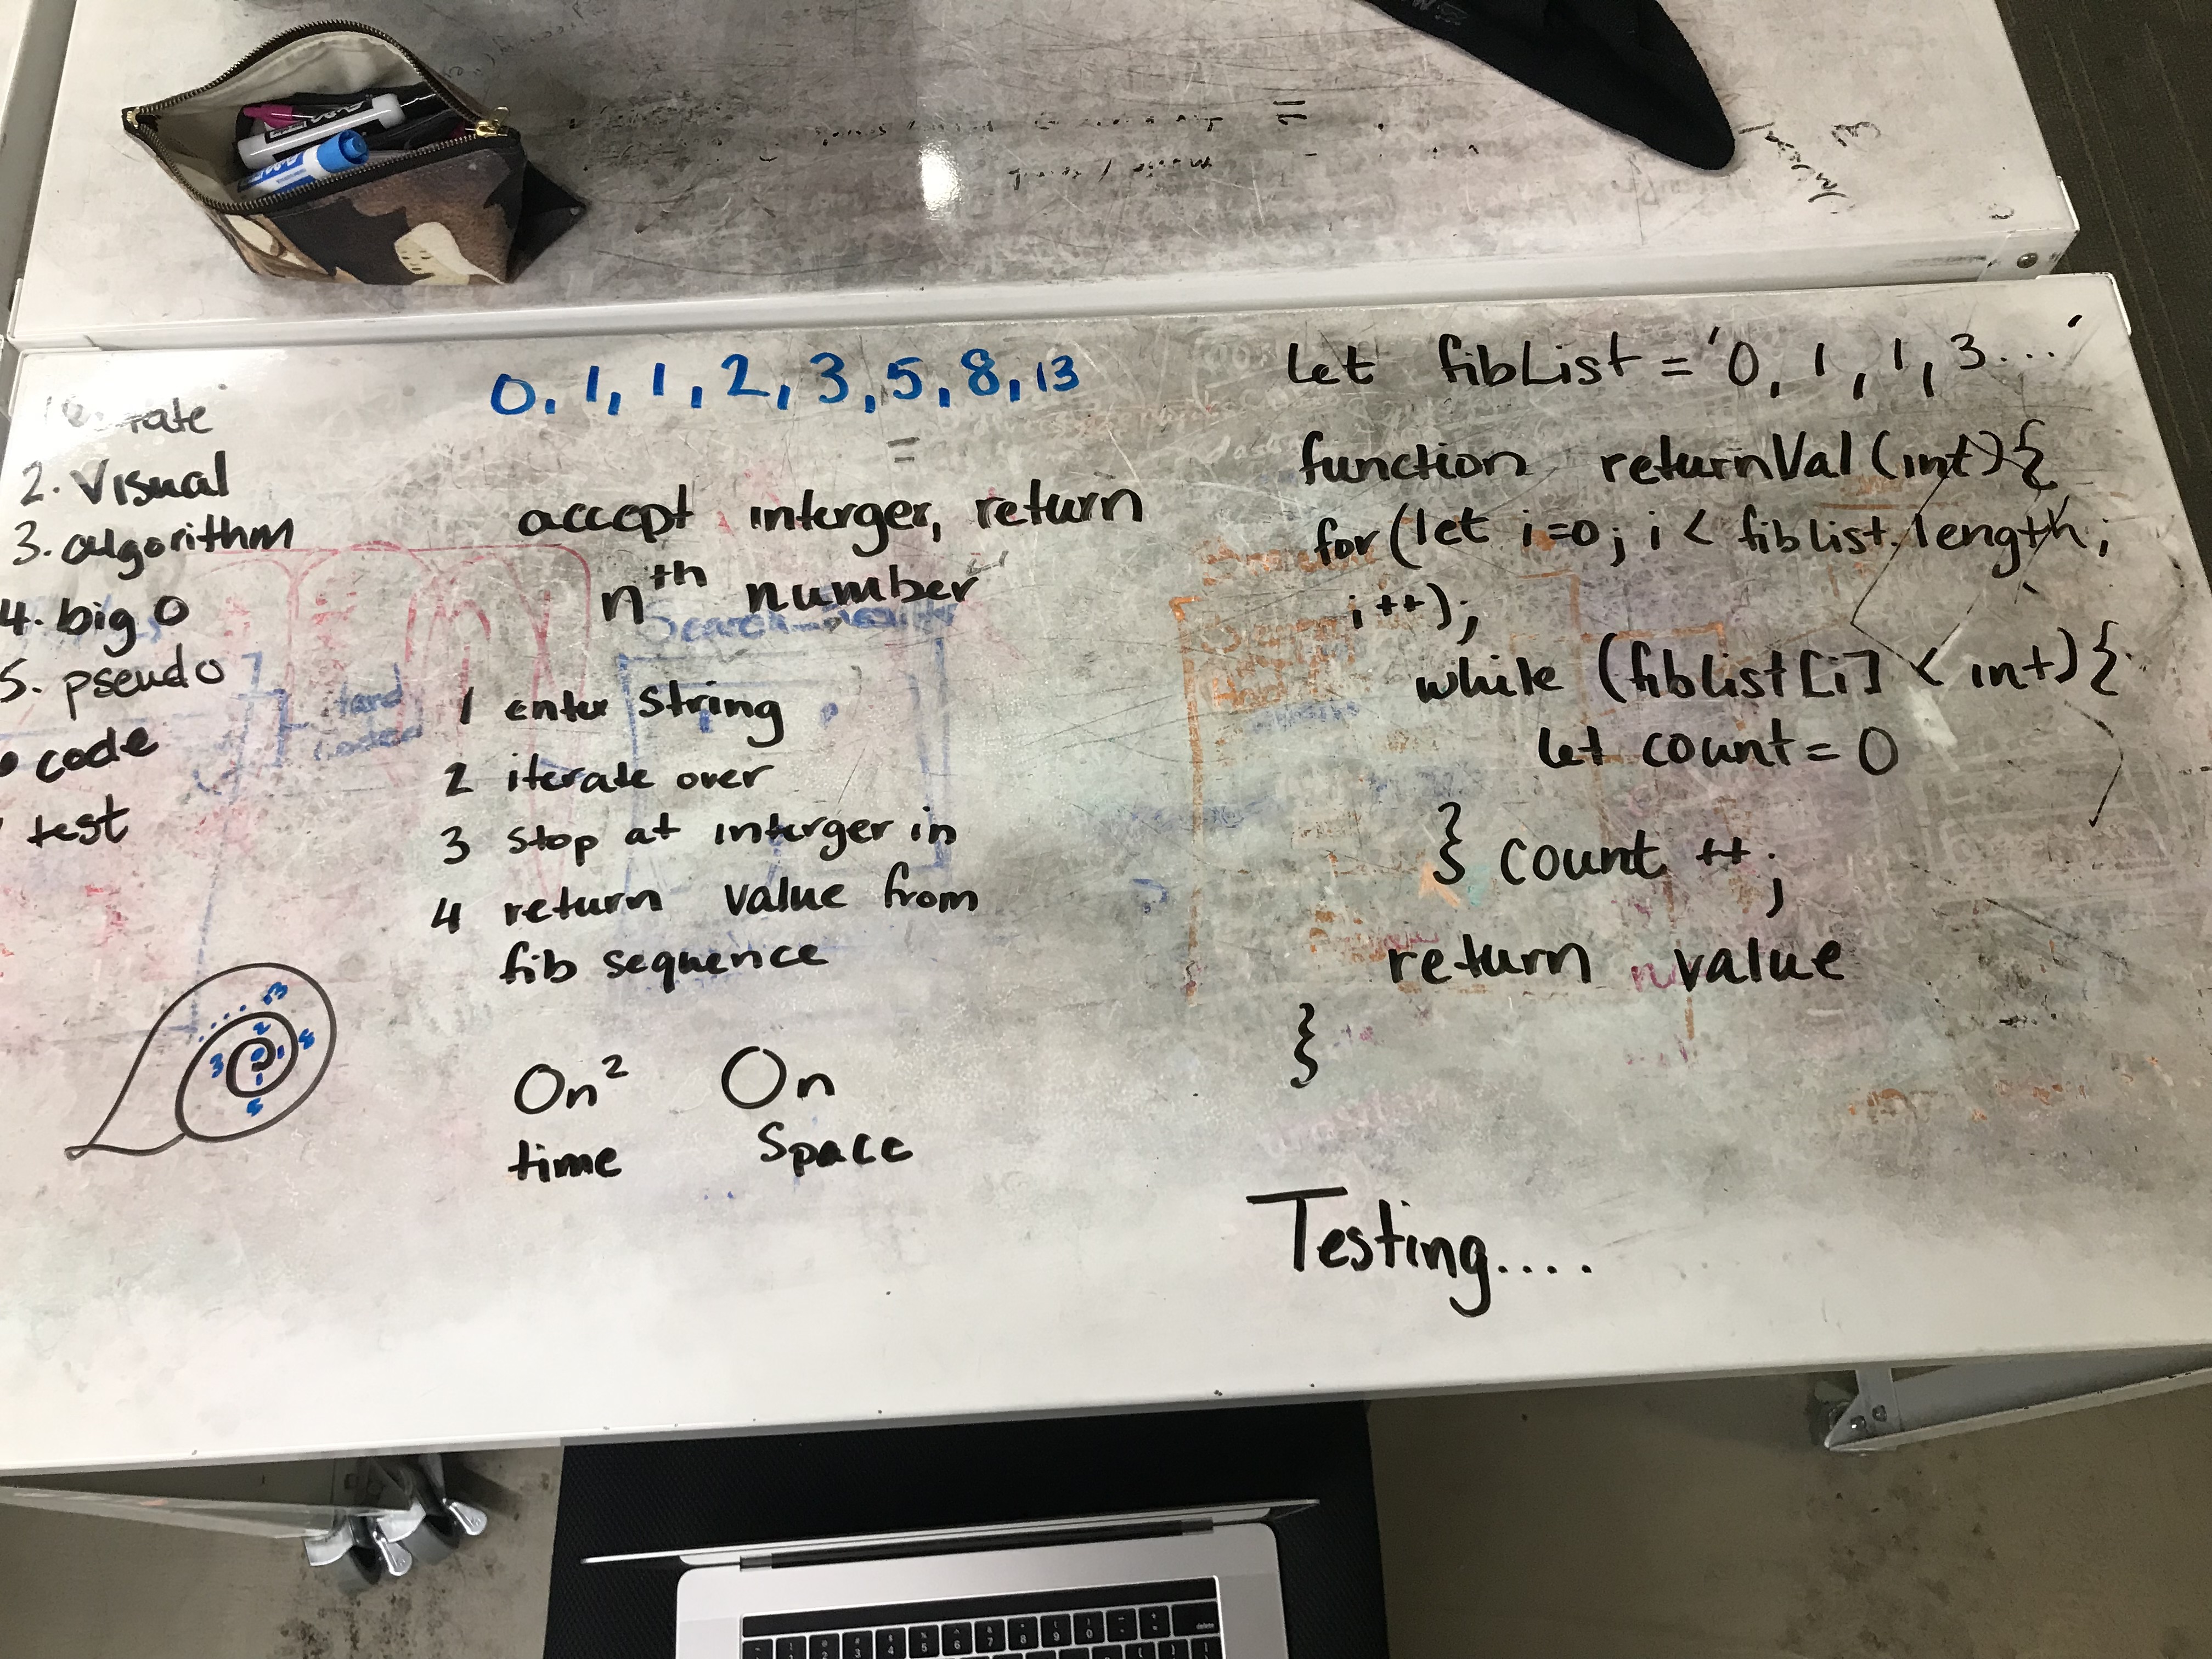 2. Visual
3. algorithm
4. big O
5. pseudo
code
test
0, 1, 1, 2, 3, 5, 8, 13
=
accept interger, return
nth number
1 enter string
2 iterate over
3 stop at interger in
4 return value from
fib sequence
On² On
time Space
13
2
3 0 1 8
1
5
let fibList = '0, 1, 1, 3...'
function returnVal (int) {
for (let i=0; i < fiblist.length;
i++);
while (fiblist[i] < int) {
let count = 0
} count ++;
return value
}
Testing....
Search
delete